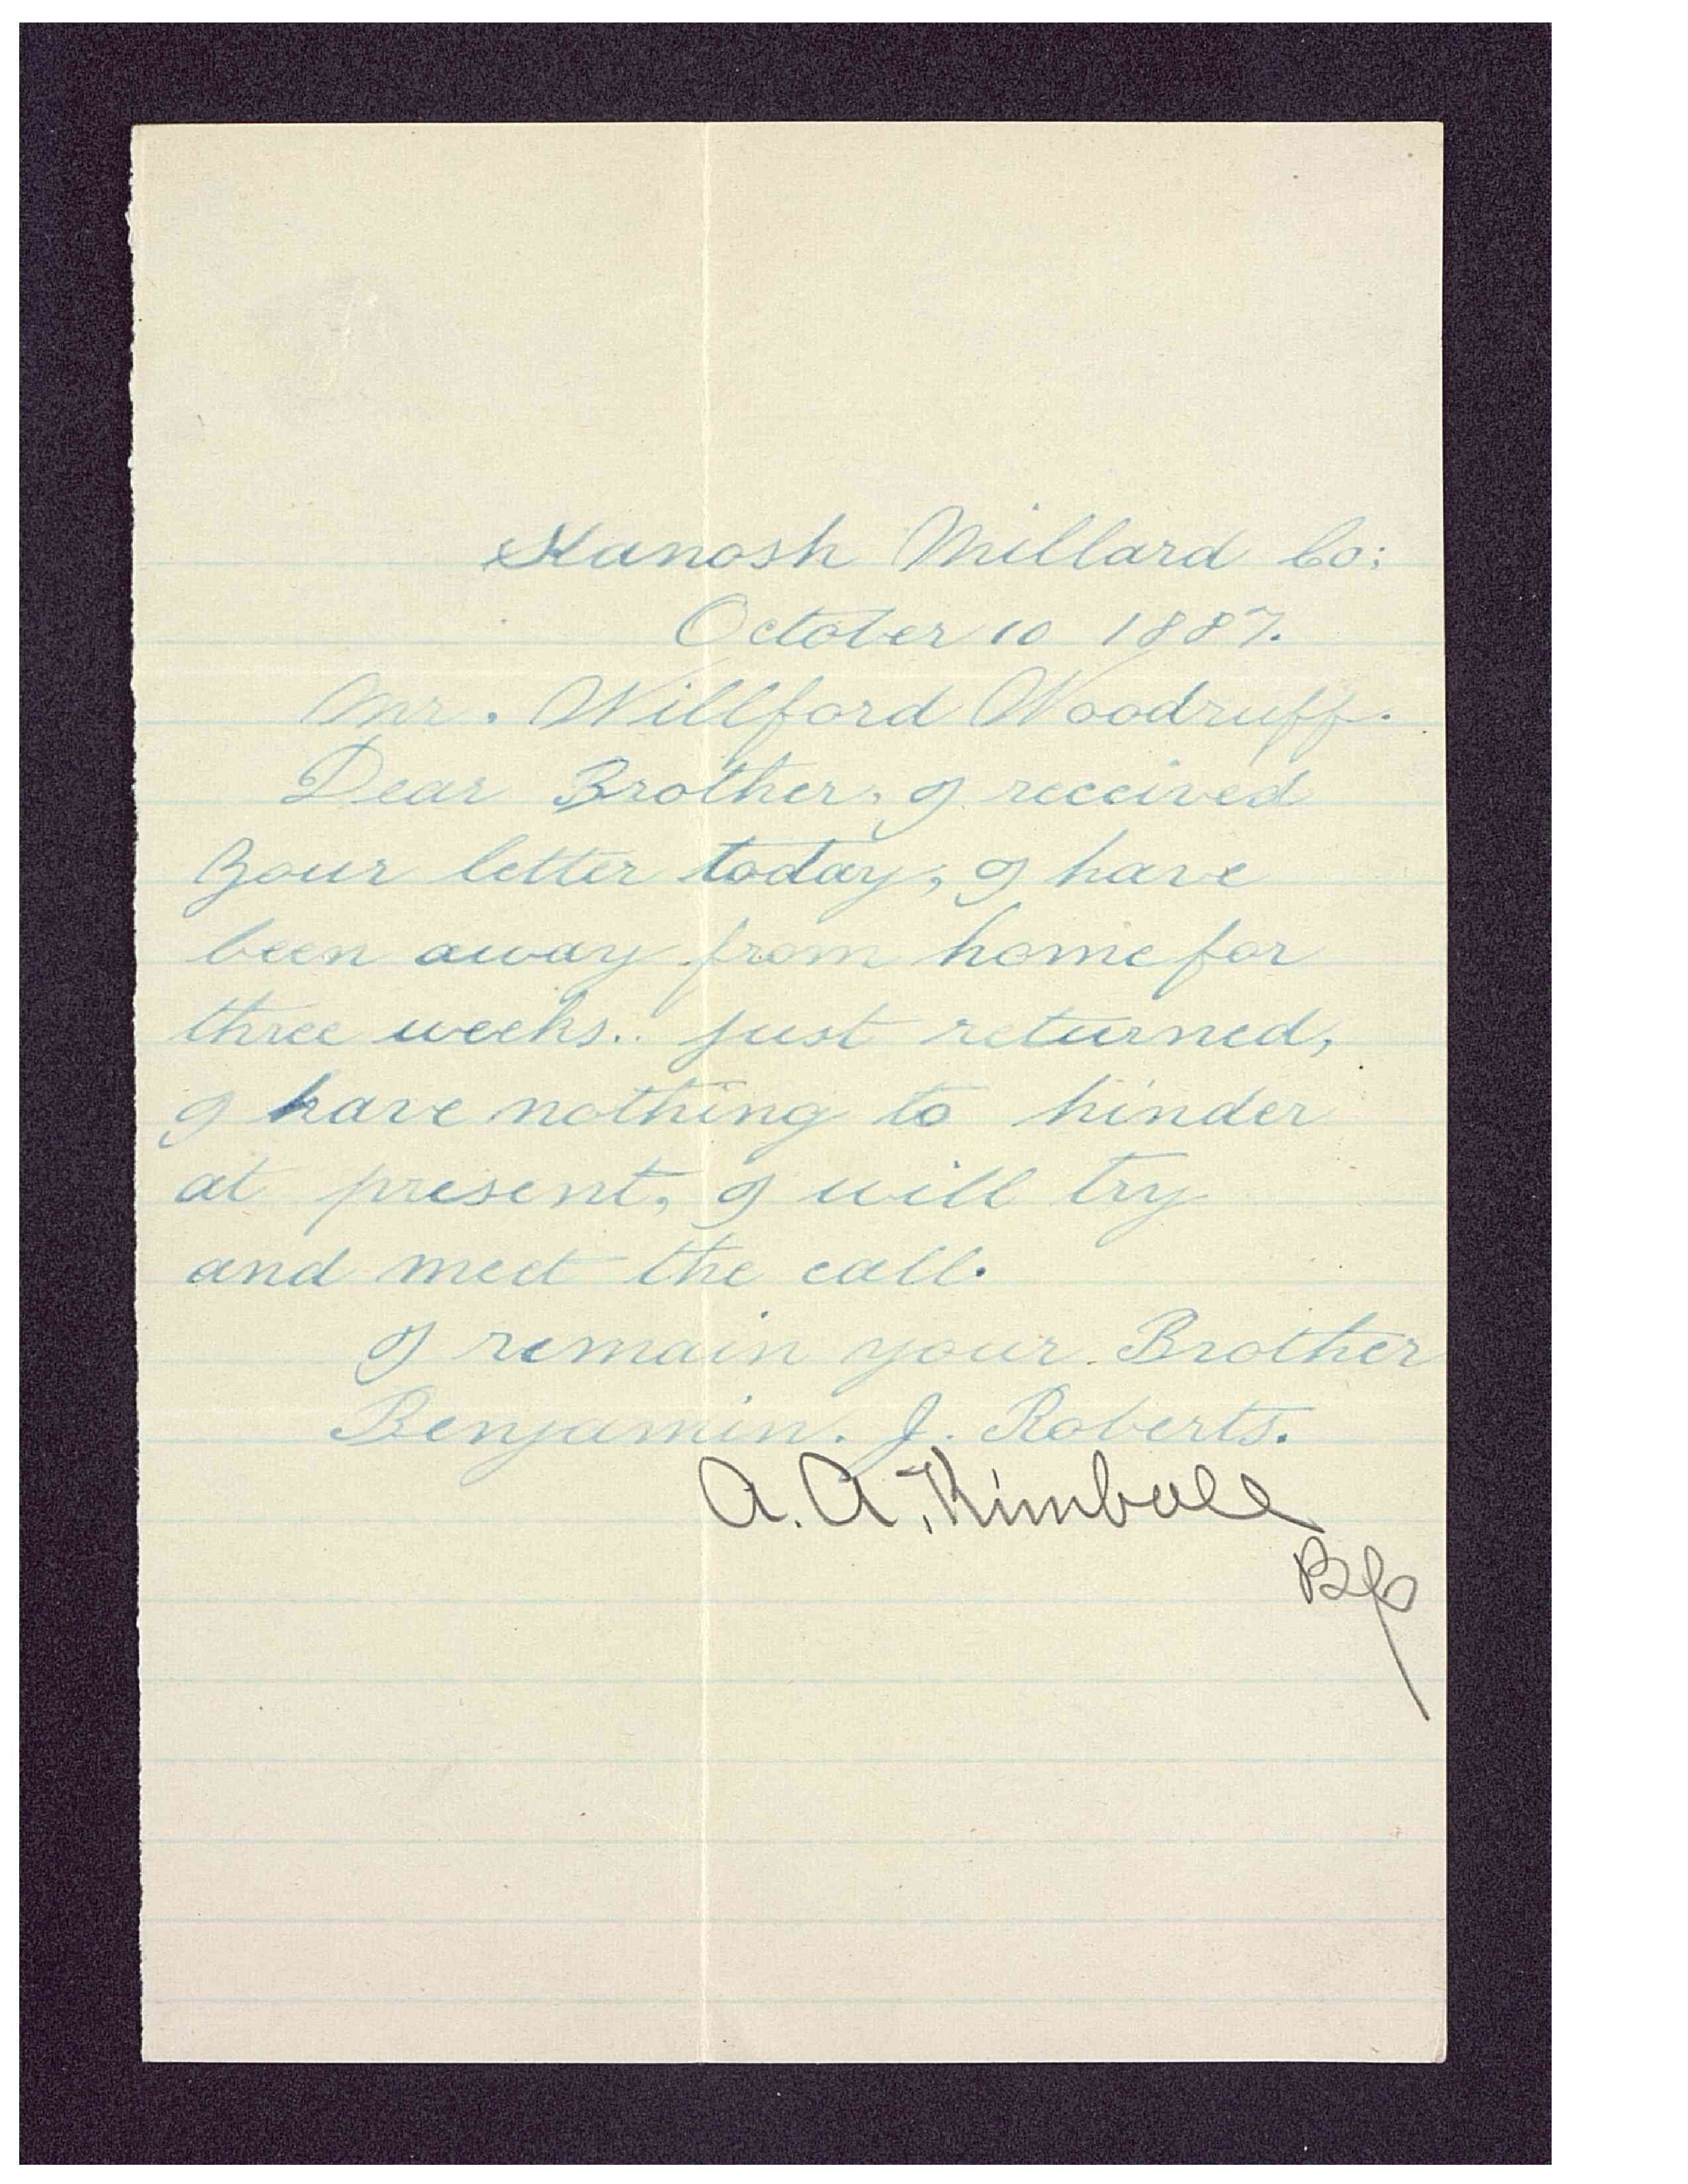 Kanosh Millard Co;
October 10 1887.
Mr. Willford Woodruff.
Dear Brother, I received
your letter today, I have
been away from home for
three weeks.. just returned,
I have nothing to hinder
at present, I will try
and meet the call.
I remain your Brother
Benjamin. J. Roberts.
A. A. Kimball
Bp